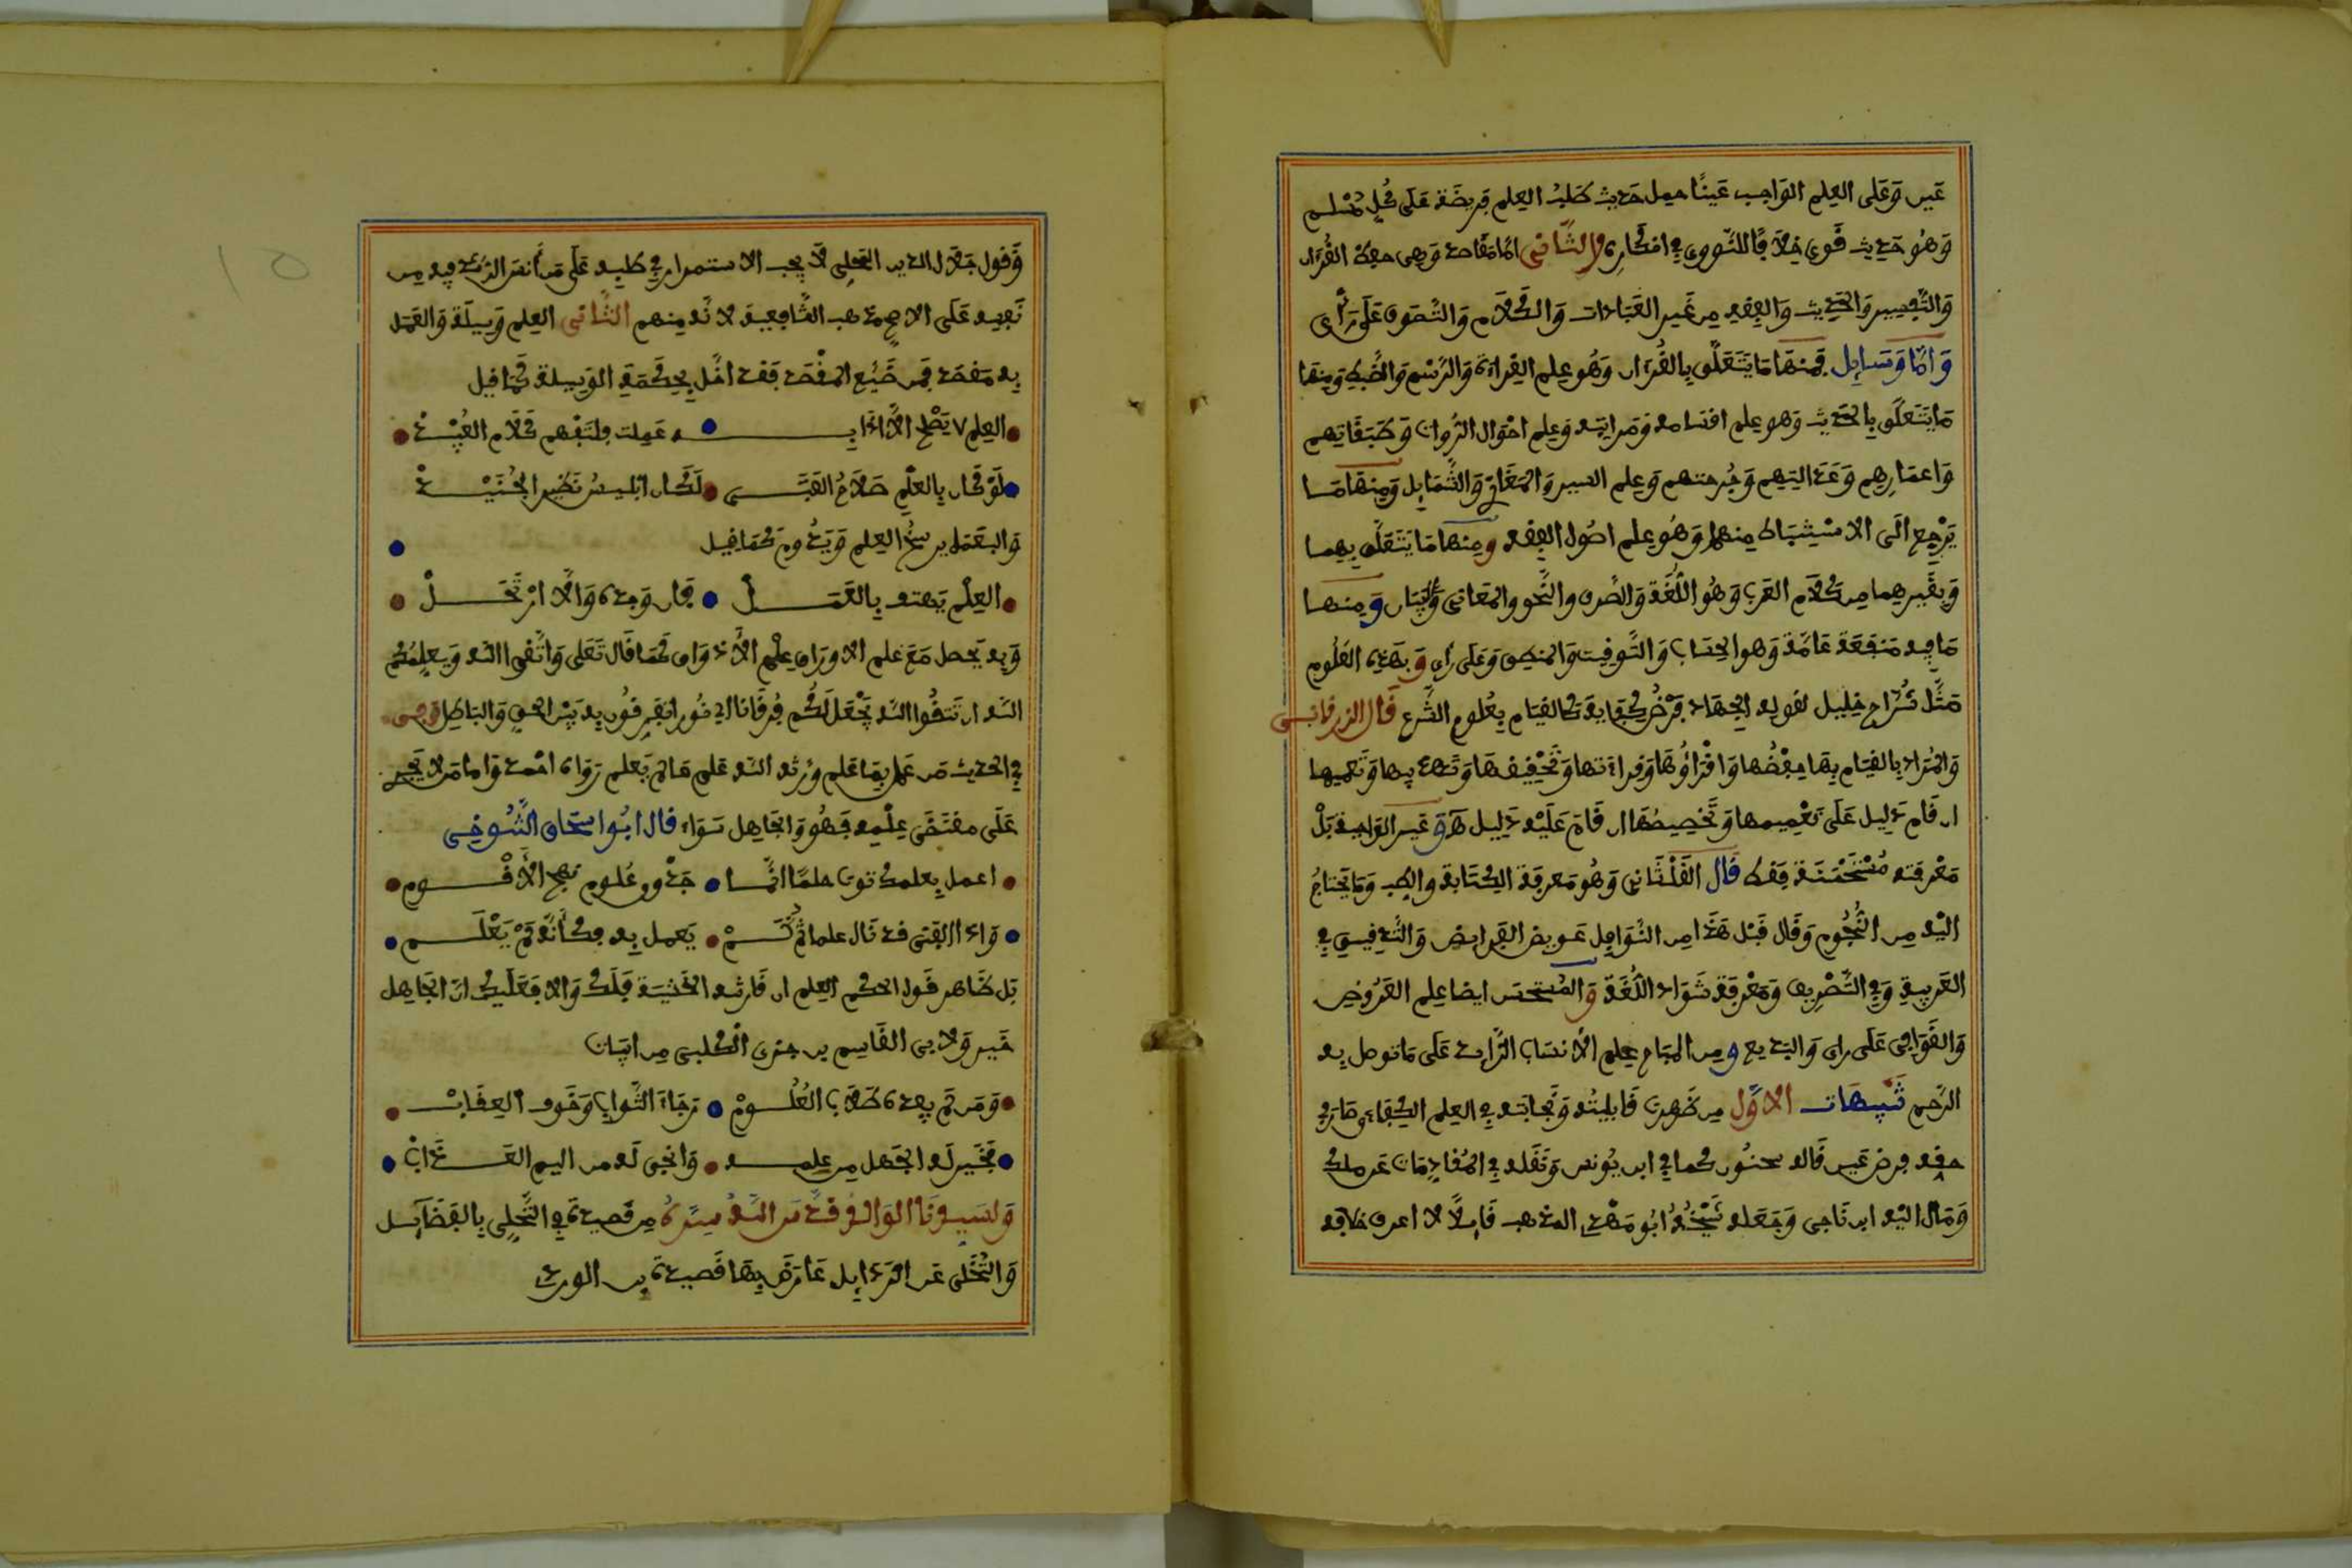 عين وعلى العلم الواجب عينا حمل حديث طلب العلم فريضة على كل مسلم
وهو حديث قوي خلافا للنووي في اذكاره والثاني اما مقاصد وهي حفظ القرءان
والتفسير والحديث والفقه من غير العبادات والكلام والتصوف على رأي
واما وسايل فمنها ما يتعلق بالقرءان وهو علم القراءة والرسم والضبط ومنها
ما يتعلق بالحديث وهو علم اقسامه ومراتبه وعلم احوال الرواة وطبقاتهم
واعمارهم وعدالتهم وجرحتهم وعلم السير والمغازي والشمايل ومنها ما
يرجع الى الاستنباط منهما وهو علم اصول الفقه ومنها ما يتعلق بهما
وبغيرهما من كلام العرب وهو اللغة والصرف والنحو والمعاني والبيان ومنها
ما فيه منفعة عامة وهو الحساب والتوقيت والمنطق وعلى رأي وبهذه العلوم
مثل شراح خليل لقوله الجهاد فرض كفاية كالقيام بعلوم الشرع قال الزرقاني
والمراد بالقيام بها حفظها واقراؤها وقراءتها وتحقيقها وتهذيبها وتعميمها
ان قام دليل على تعميمها وتخصيصها ان قام عليه دليل وغير الواجبة بل
معرفته مستحسنة فقط قال القلشاني وهو معرفة الكتابة والطب وما يحتاج
اليه من النجوم وقال قبل هذا من النوافل عويص الفرايض والتدقيق في
العربية وفي التصريف ومعرفة شواذ اللغة والمستحسن ايضا علم العروض
والقوافي على راي والبديع ومن المباح علم الانساب الزايد على ما توصل به
الرحم تنبيهات الاول من ظهرت قابليته ونجابته في العلم الكفاءي صار في
حقه فرض عين قاله سحنون كما في ابن يونس ونقله في المقدمات عن ملك
ومال اليه ابن ناجي وجعله شيخه ابو مهدي المذهب قايلا لا اعرف خلافه
وقول جلال الدين المحلي لا يجب الاستمرار في طلبه على من أنس الرشد فيه من
نفسه على الاصح مذهب الشافعية لانه منهم الثاني العلم وسيلة والعمل
به مقصد فمن ضيع المقصد فقد اخل بحكمة الوسيلة كما قيل
العلم لا يصلح الا اذا به عملت ولتفهم كلام العبيد
لو كان بالعلم صلاح الفتى لكان ابليس نظير الجنيد
والبعمل يرسخ العلم ويدوم كما قيل
العلم يهتف بالعمل فان وجده والا ارتحل
وبه يحصل مع علم الاوراق علم الاذواق كما قال تعلى واتقوا الله ويعلمكم
الله ان تتقوا الله يجعل لكم فرقانا اي نورا تفرقون به بين الحق والباطل وهي
في الحديث من عمل بما علم ورثه الله علم ما لم يعلم رواه احمد واما من لا يجري
على مقتضى علمه فهو والجاهل سواء قال ابو اسحاق التنوخي
اعمل بعلمك توت حلما انما جدوى علوم نهج الأقوم
واذا الفتى قد نال علما ثم لم يعمل به فكأنه لم يعلم
بل ظاهر قول الحكم العلم ان قارنته الخشية فلك والا فعليك ان الجاهل
خير ولابي القاسم بن جزي الكلبي من ابيات
ومن لم يهده طلاب العلوم رجاء الثواب وخوف العقاب
فخير له الجهل من علمه وانجى له من اليم العذاب
ولسيدنا الوالد قدس الله سره من قصيدة في التحلي بالفضايل
والتخلي عن الرذايل عارض بها قصيدة بن الوردي